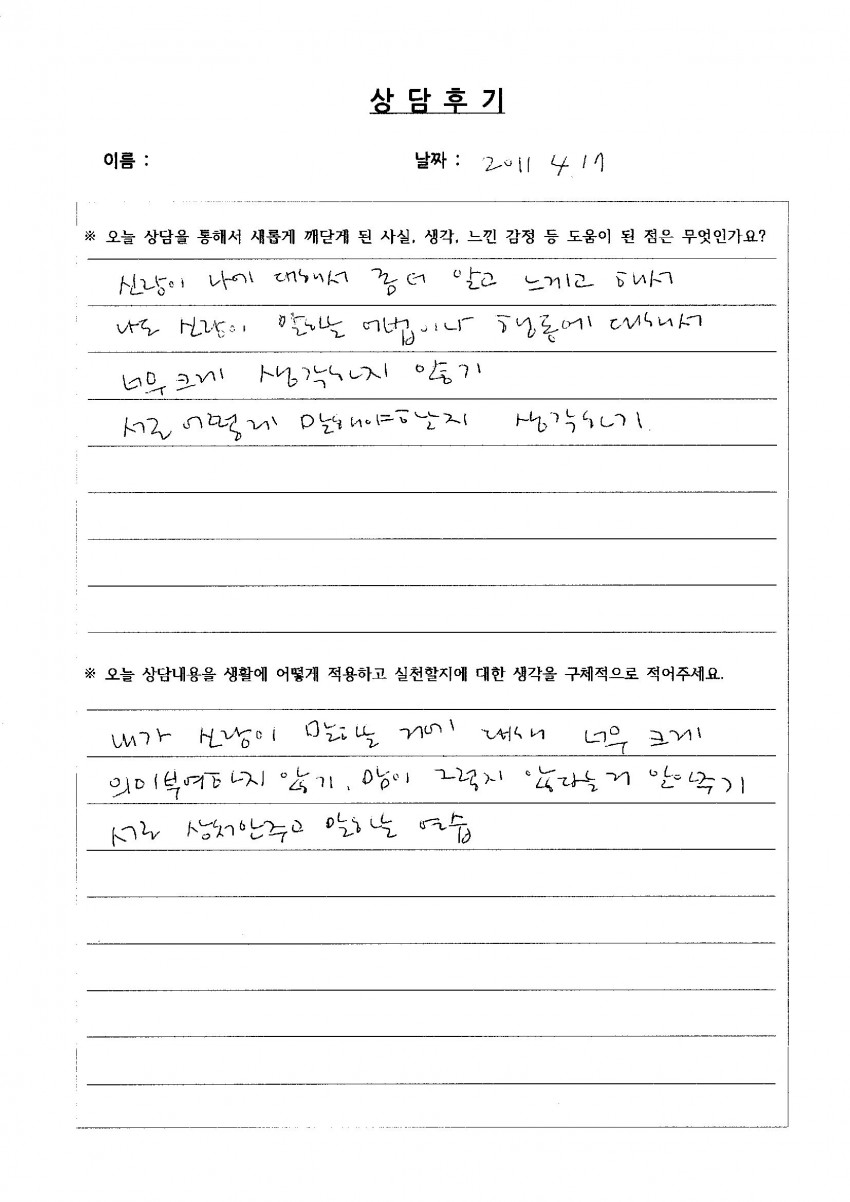 상 담 후 기
이름 : 날짜 : 2011 4.17
※ 오늘 상담을 통해서 새롭게 깨닫게 된 사실, 생각, 느낀 감정 등 도움이 된 점은 무엇인가요?
신랑이 나에 대해서 좀더 알고 느끼고 해서
나도 신랑이 말하는 어법이나 행동에 대해서
너무크게 생각하지 않기
서로 어떻게 말해야하는지 생각하기.
※ 오늘 상담내용을 생활에 어떻게 적용하고 실천할지에 대한 생각을 구체적으로 적어주세요.
내가 신랑이 말하는 거에 대해 너무 크게
의미부여하지 않기, 맘이 그렇지 않다는거 알아주기
서로 상처안주고 말하는 연습